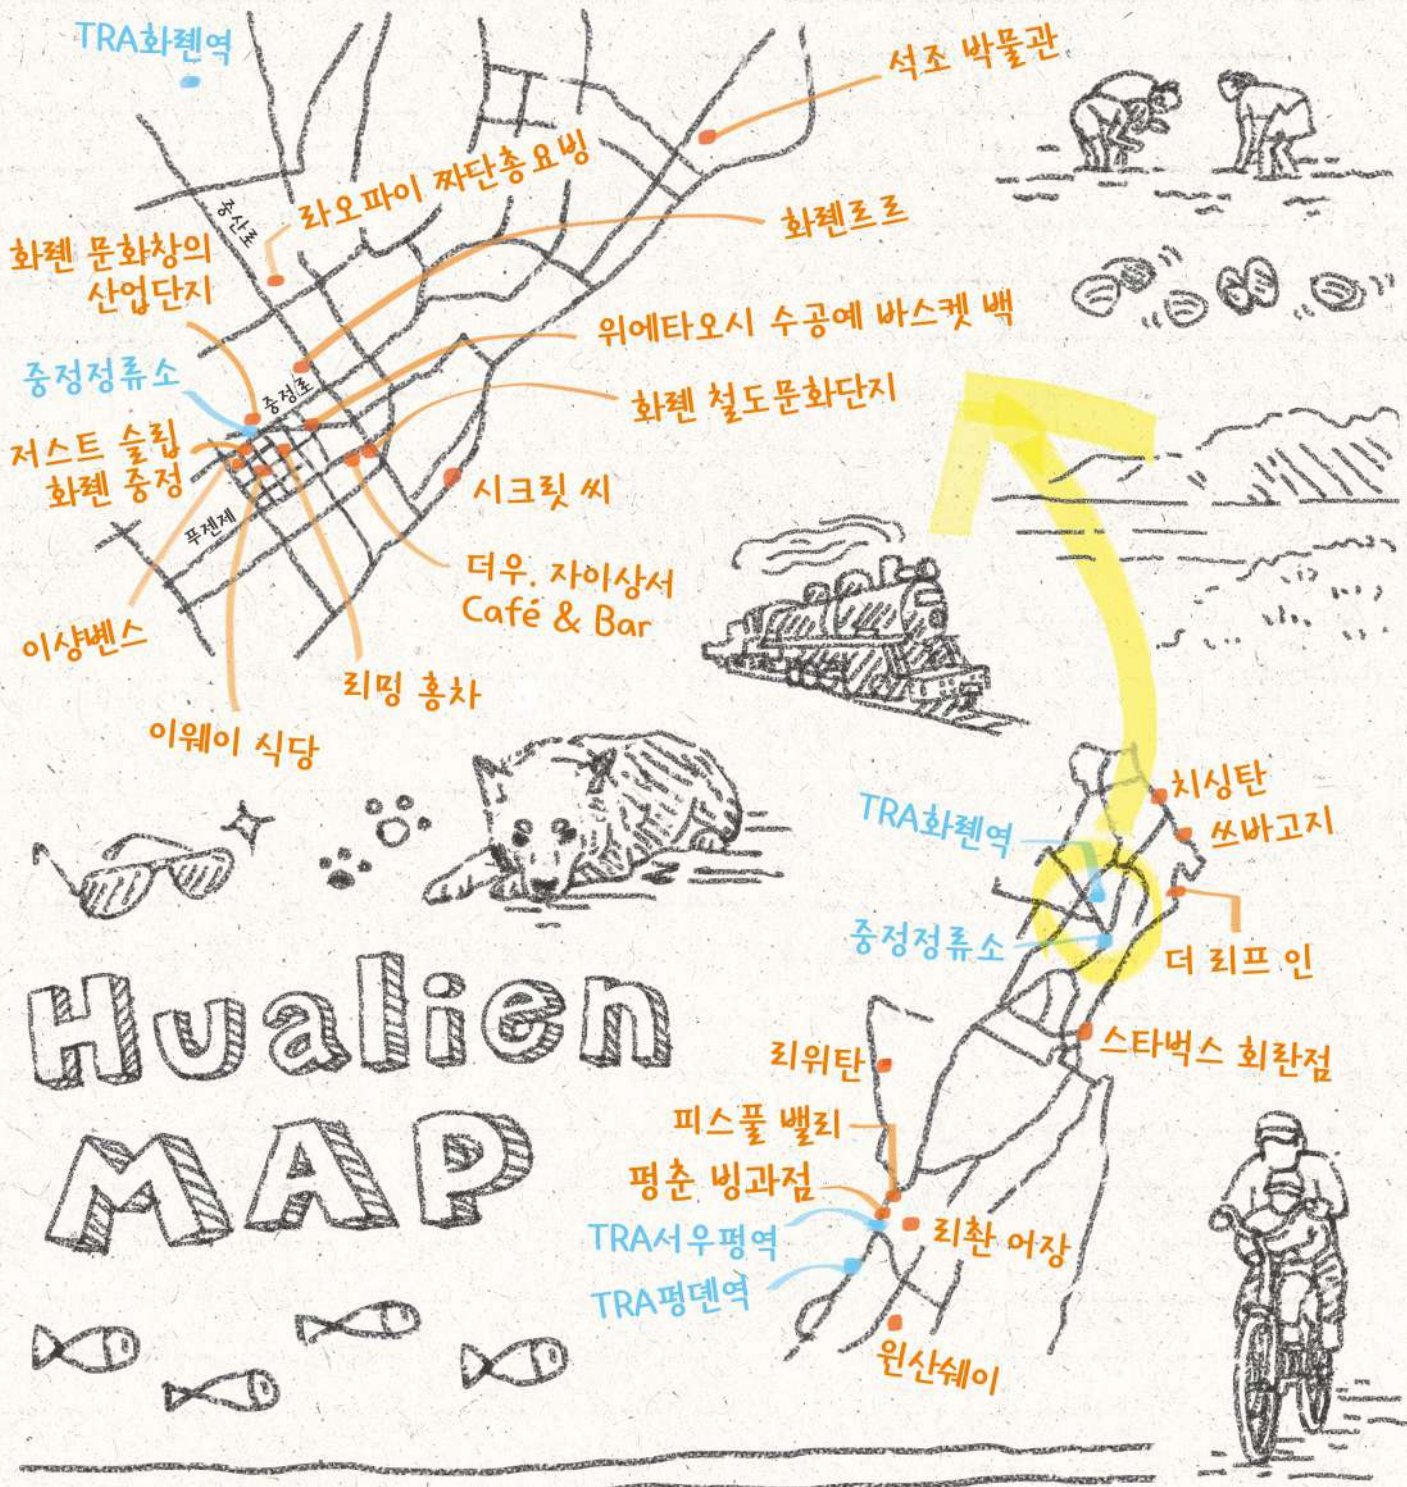 TRA화롄역
석조 박물관
라오파이 짜단총요빙
중산로
화롄르르
화롄 문화창의
산업단지
위에타오시 수공예 바스켓 백
중정정류소
중정로
화롄 철도문화단지
저스트 슬립
화롄 중정
시크릿 씨
푸젠제
더우. 자이상서
Café & Bar
이샹볜스
리밍 홍차
이웨이 식당
치싱탄
TRA화롄역
쓰바고지
중정정류소
더 리프 인
Hualien
MAP
스타벅스 회란점
리위탄
피스풀 밸리
펑춘 빙과점
TRA서우펑역
리촨 어장
TRA펑뎬역
윈산쉐이